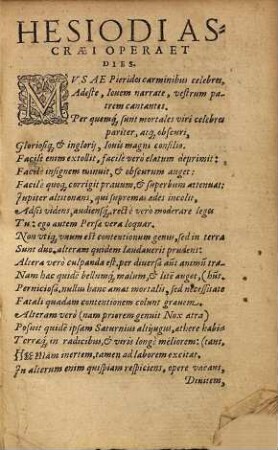 HESIODI AS-
CRÆI OPERA ET
DIES.
MVSAE Pierides carminibus celebres,
Adeste, Iouem narrate, vestrum pa-
trem cantantes.
Per quemq́; sunt mortales viri celebres
pariter, atq; obscuri,
Gloriosiq́; & inglorij, Iouis magni consilio.
Facilè enim extollit, facilè vero elatum deprimit:
Facilè insignem minuit, & obscurum auget:
Facilè quoq; corrigit prauum, & superbum attenuat:
Iupiter altitonans, qui supremas ædes incolit.
Adsis videns, audiensq́;, rectè verò moderare leges
Tu: ego autem Persæ vera loquar.
Non vtiq; vnum est contentionum genus, sed in terra
Sunt duo, alteram quidem laudauerit prudens:
Altera verò culpanda est, per diuersa aũt animũ tra-
Nam hæc quidẽ bellumq́;, malum, & litẽ auget, (hũt.
Perniciosa, nullus hanc amat mortalis, sed necessitate
Fatali quadam contentionem colunt grauem.
Alteram verò (nam priorem genuit Nox atra)
Posuit quidẽ ipsam Saturnius altijugus, æthere habi-
Terræq́;, in radicibus, & viris longè meliorem: (tans,
Illam inertem, tamen ad laborem excitat.
In alterum enim quispiam respiciens, opere vacans,
Diuitem,